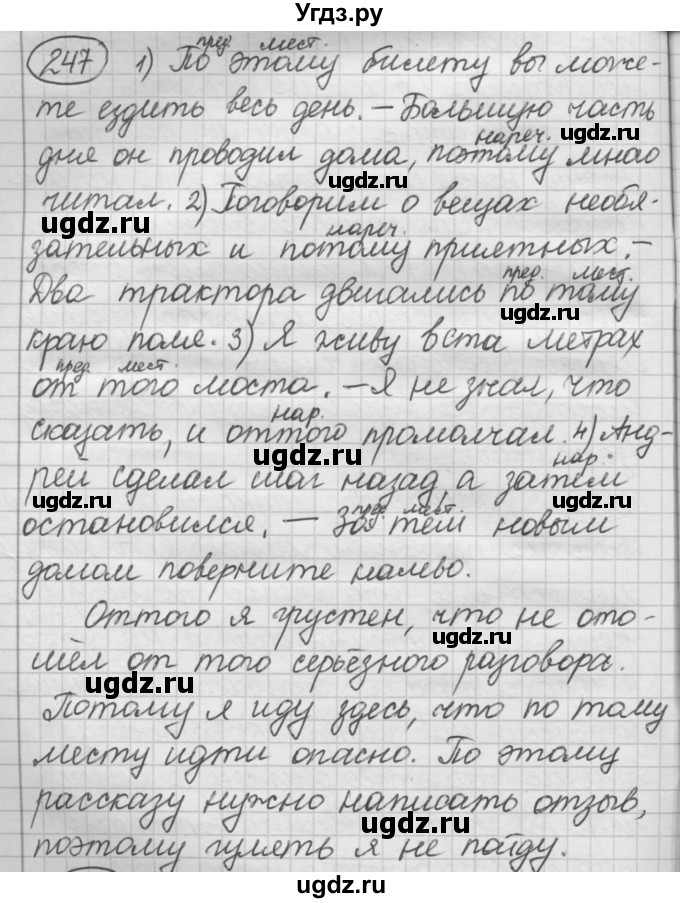 Угдз.ру
пред. мест.
247 1) По этому билету вы може-
те ездить весь день. – Большую часть
ugdz.ru
нареч.
дня он проводил дома, поэтому мнао
ugdz.ru
читал. 2) Поговорим о вещах необя-
ugdz.ru
нареч.
зательных и потому приятных. –
пред. мест.
Два трактора двигались по тому
краю поля. 3) Я живу в ста метрах
ugdz.ru
пред. мест.
от того моста. – Я не знал, что
нар.
сказать, и оттого промолчал. 4) Анд-
ugdz.ru
нар.
рей сделал шаг назад, а затем
ugdz.ru ugdz.ru
пред. мест.
остановился. – За тем новым
домом поверните налево.
Оттого я грустен, что не ото-
ugdz.ru
шёл от того серьёзного разговора.
ugdz.ru
Потому я иду здесь, что по тому
месту идти опасно. По этому
рассказу нужно написать отзыв,
ugdz.ru
поэтому гулять я не пойду.
ugdz.ru